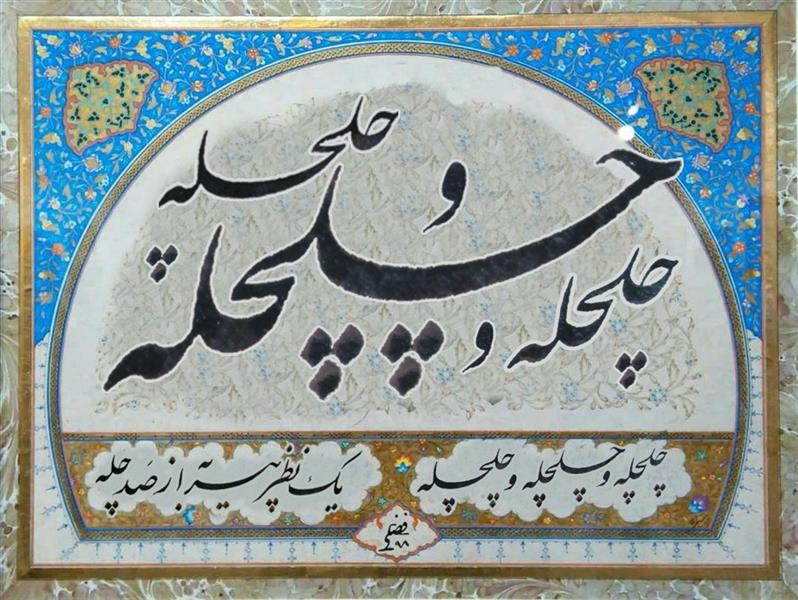 چلچله و چلچله و چلچله
چلچله و چلچله و چلچله
یک نظر پیر به از صَد چله